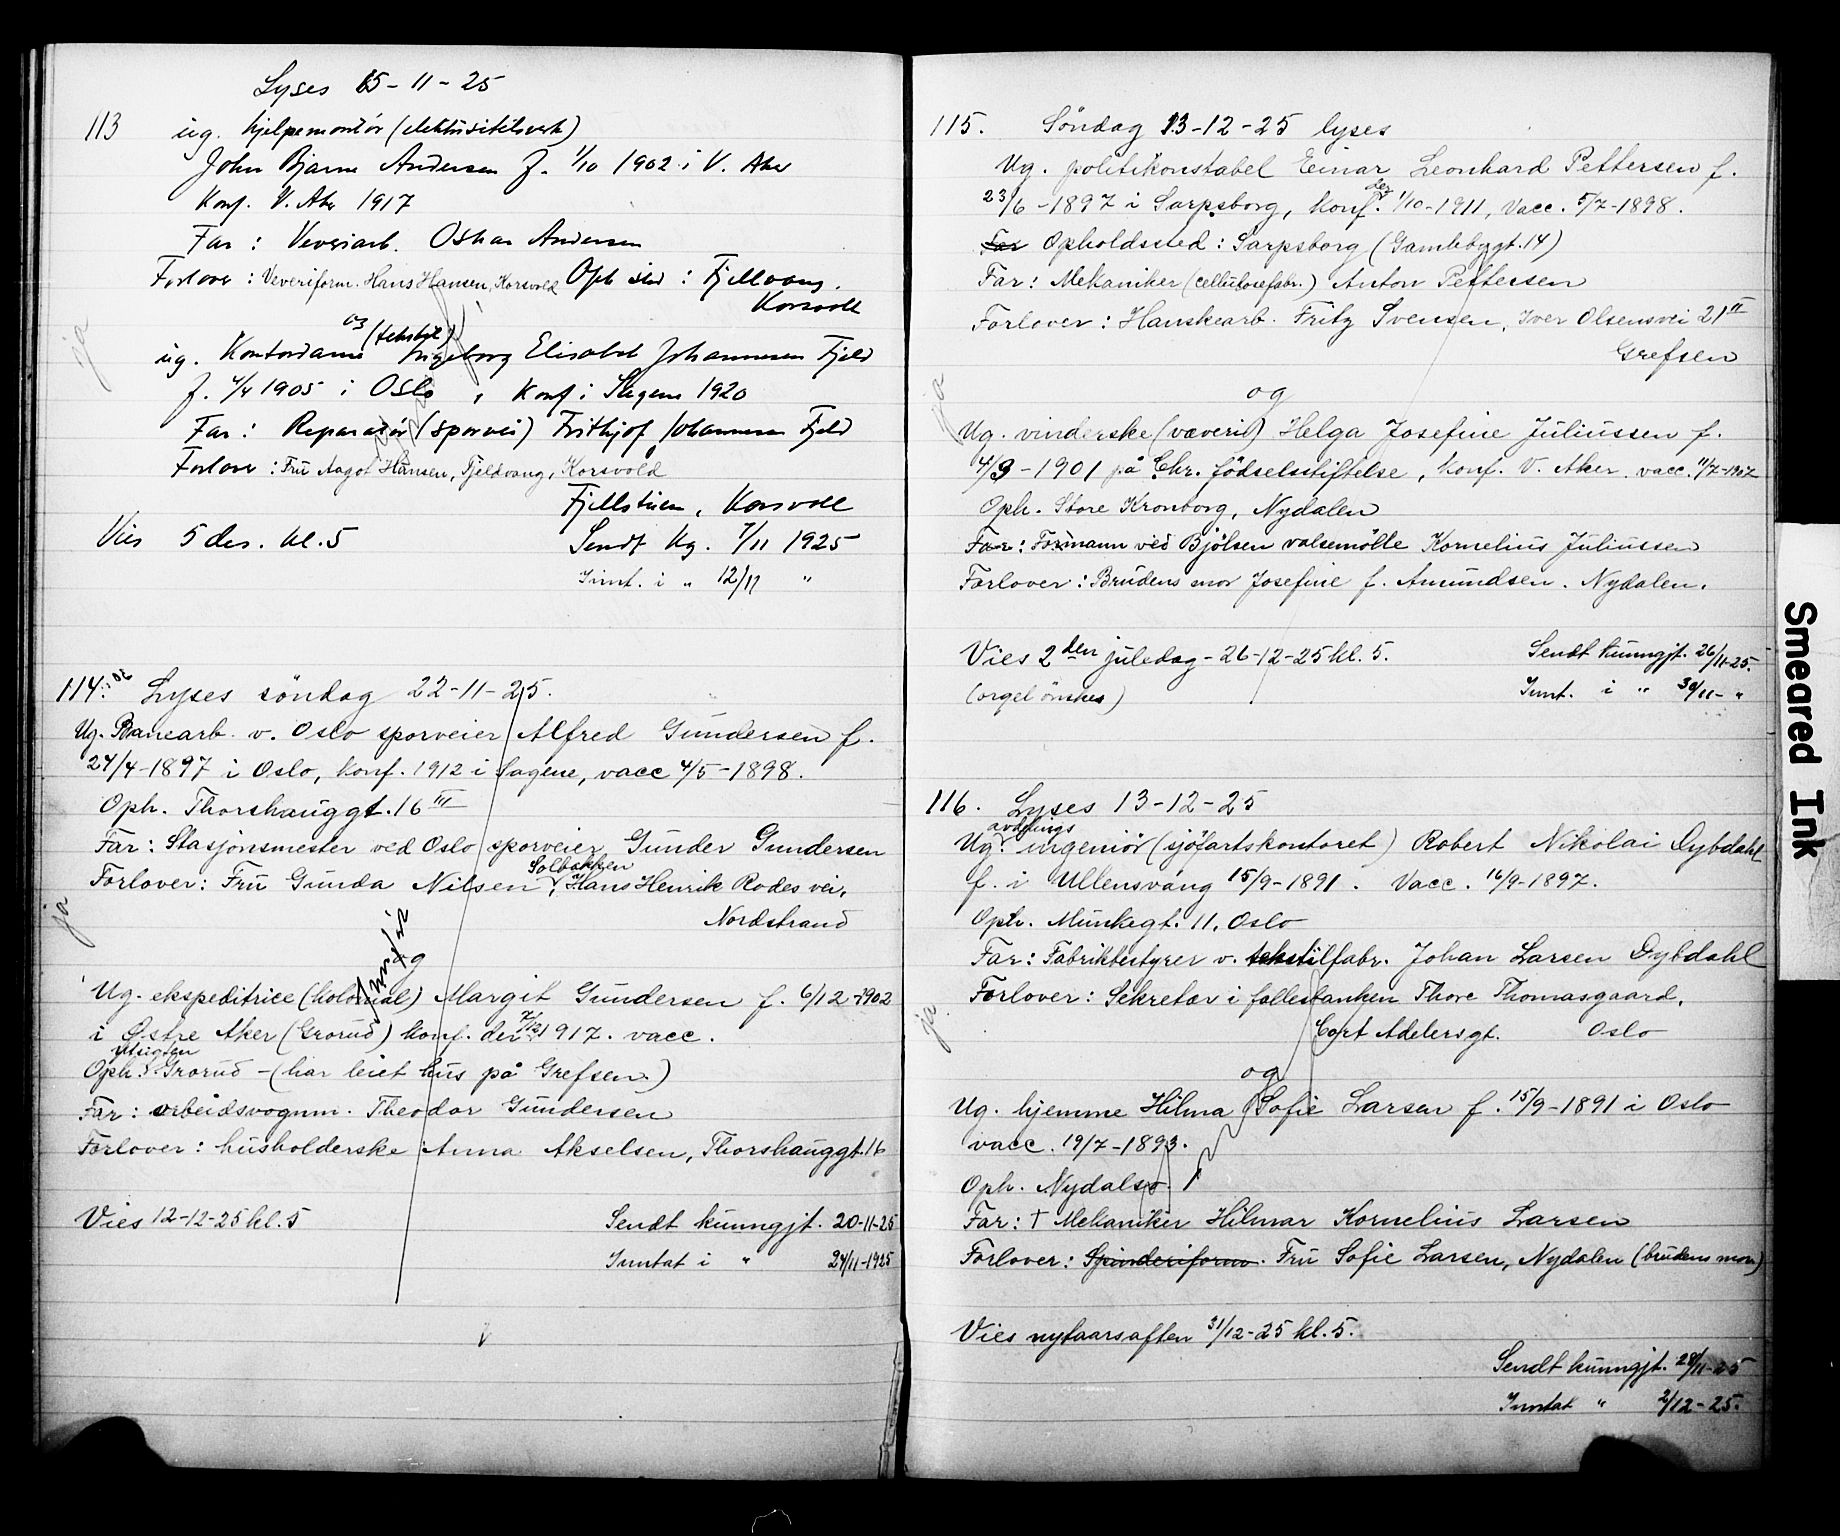 Lyses 15-11-25
113 ug. hjelpemontør (elektrisitetsverk)
John Bjarne Andersen f. 1/10 1902 i V. Aker
Konf. V. Aker 1917
Far: Veveriarb. Oskar Andersen
Forlover: Veveriform. Hans Hansen, Korsvold Oph sted: Fjellvang,
Korsvoll
og (tekstil)
ug. Kontordame Ingeborg Elisabet Johannessen Fjeld
f. 4/4 1905 i Oslo, Konf i Sagene 1920
Far: Reparatør (sporvei) Frithjof Johannessen Fjeld
Forlover: Fru Aagot Hansen, Fjeldvang, Korsvold
Fjellstuen, Korsvoll
Vies 5 des. kl. 5 Sendt Kg. 7/11 1925
Innt. i " 12/11 "
ja
114. Lyses søndag 22-11-25.
Ug. Banearb. v. Oslo sporveier Alfred Gundersen f.
24/4-1897 i Oslo, konf. 1912 i Sagene, vacc 4/5-1898.
Oph. Thorshauggt. 16 III
Far: Stasjonsmester ved Oslo sporveier Gunder Gundersen
Solbakken
Forlover: Fru Gunda Nilsen, Hans Henrik Rodes vei,
Nordstrand
ja
og
Ug. ekspeditrice (kolonial) Margit Gundersen f. 6/12-1902
i Østre Aker (Grorud) konf. den 7/12 1917. vacc.
Utsigten
Oph. Grorud - (har leiet hus på Grefsen.)
Far: arbeidsvognm. Theodor Gundersen
Forlover: husholderske Anna Akselsen, Thorshauggt. 16
Vies 12-12-25 kl. 5 Sendt kunngjt. 20-11-25
Inntat i " 24/11-1925
115. Söndag 13-12-25 lyses
Ug. politikonstabel Einar Leonhard Pettersen f.
23/6-1897 i Sarpsborg, konf. der 1/10-1911, vacc. 5/7-1898.
Far Opholdssted: Sarpsborg (Gamlebygt. 14)
Far: Mekaniker (cellulosefabr.) Anton Pettersen
Forlover: Hanskearb. Fritz Svensen, Iver Olsensvei 21 II
Grefsen
ja
og
Ug. vinderske (væveri) Helga Josefine Juliussen f.
4/3-1901 på Chr. födselsstiftelse, konf. V. Aker. vacc. 11/7-1907
Oph. Store Kronborg, Nydalen
Far: Formann ved Bjölsen valsemölle Kornelius Juliussen
Forlover: Brudens mor Josefine f. Amundsen. Nydalen.
Vies 2den juledag - 26-12-25 kl. 5. Sendt kunngjt. 26/11-25.
(orgel önskes) Innt. i " 30/11- "
116. Lyses 13-12-25
avdelings
Ug. ingeniör (sjöfartskontoret) Robert Nikolai Dybdahl
f. i Ullensvang 15/9-1891. Vacc. 16/9-1897.
Oph. Munkegt. 11, Oslo
Far: Fabrikbestyrer v. tekstilfabr. Johan Larsen Dybdahl
Forlover: Sekretær i fellesbanken Thore Thomasgaard,
Cort Adelersgt. Oslo
ja
og
Ug. hjemme Hilma Sofie Larsen f. 15/9-1891 i Oslo
vacc. 19/7-1893.
Oph. Nydalsv. 1
Far: † Mekaniker Hilmar Kornelius Larsen
Forlover: Spinderiform. Fru Sofie Larsen, Nydalen (brudens mor)
Vies nytaarsaften 31/12-25 kl. 5.
Sendt kunngjt. 28/11-25
Inntat " 2/12-25.
Smeared Ink